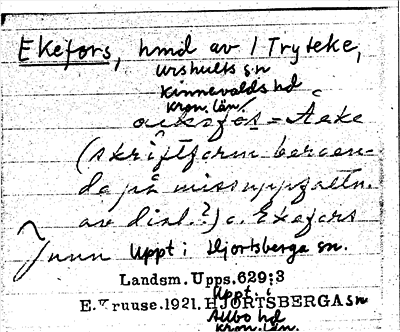 Ekefors, hmd av / Tryteke,
Urshults sn
Kinnevalds hd
Kron. län.
(skriftform beroen-
de på missuppfattn.
av dial.?) c. Ekefors
Uppt i Hjortsberga sn.
Landsm. Upps. 629:3
Uppt. i
E. Kruuse. 1921. HJORTSBERGA sn
Allbo hd
Kron. län.